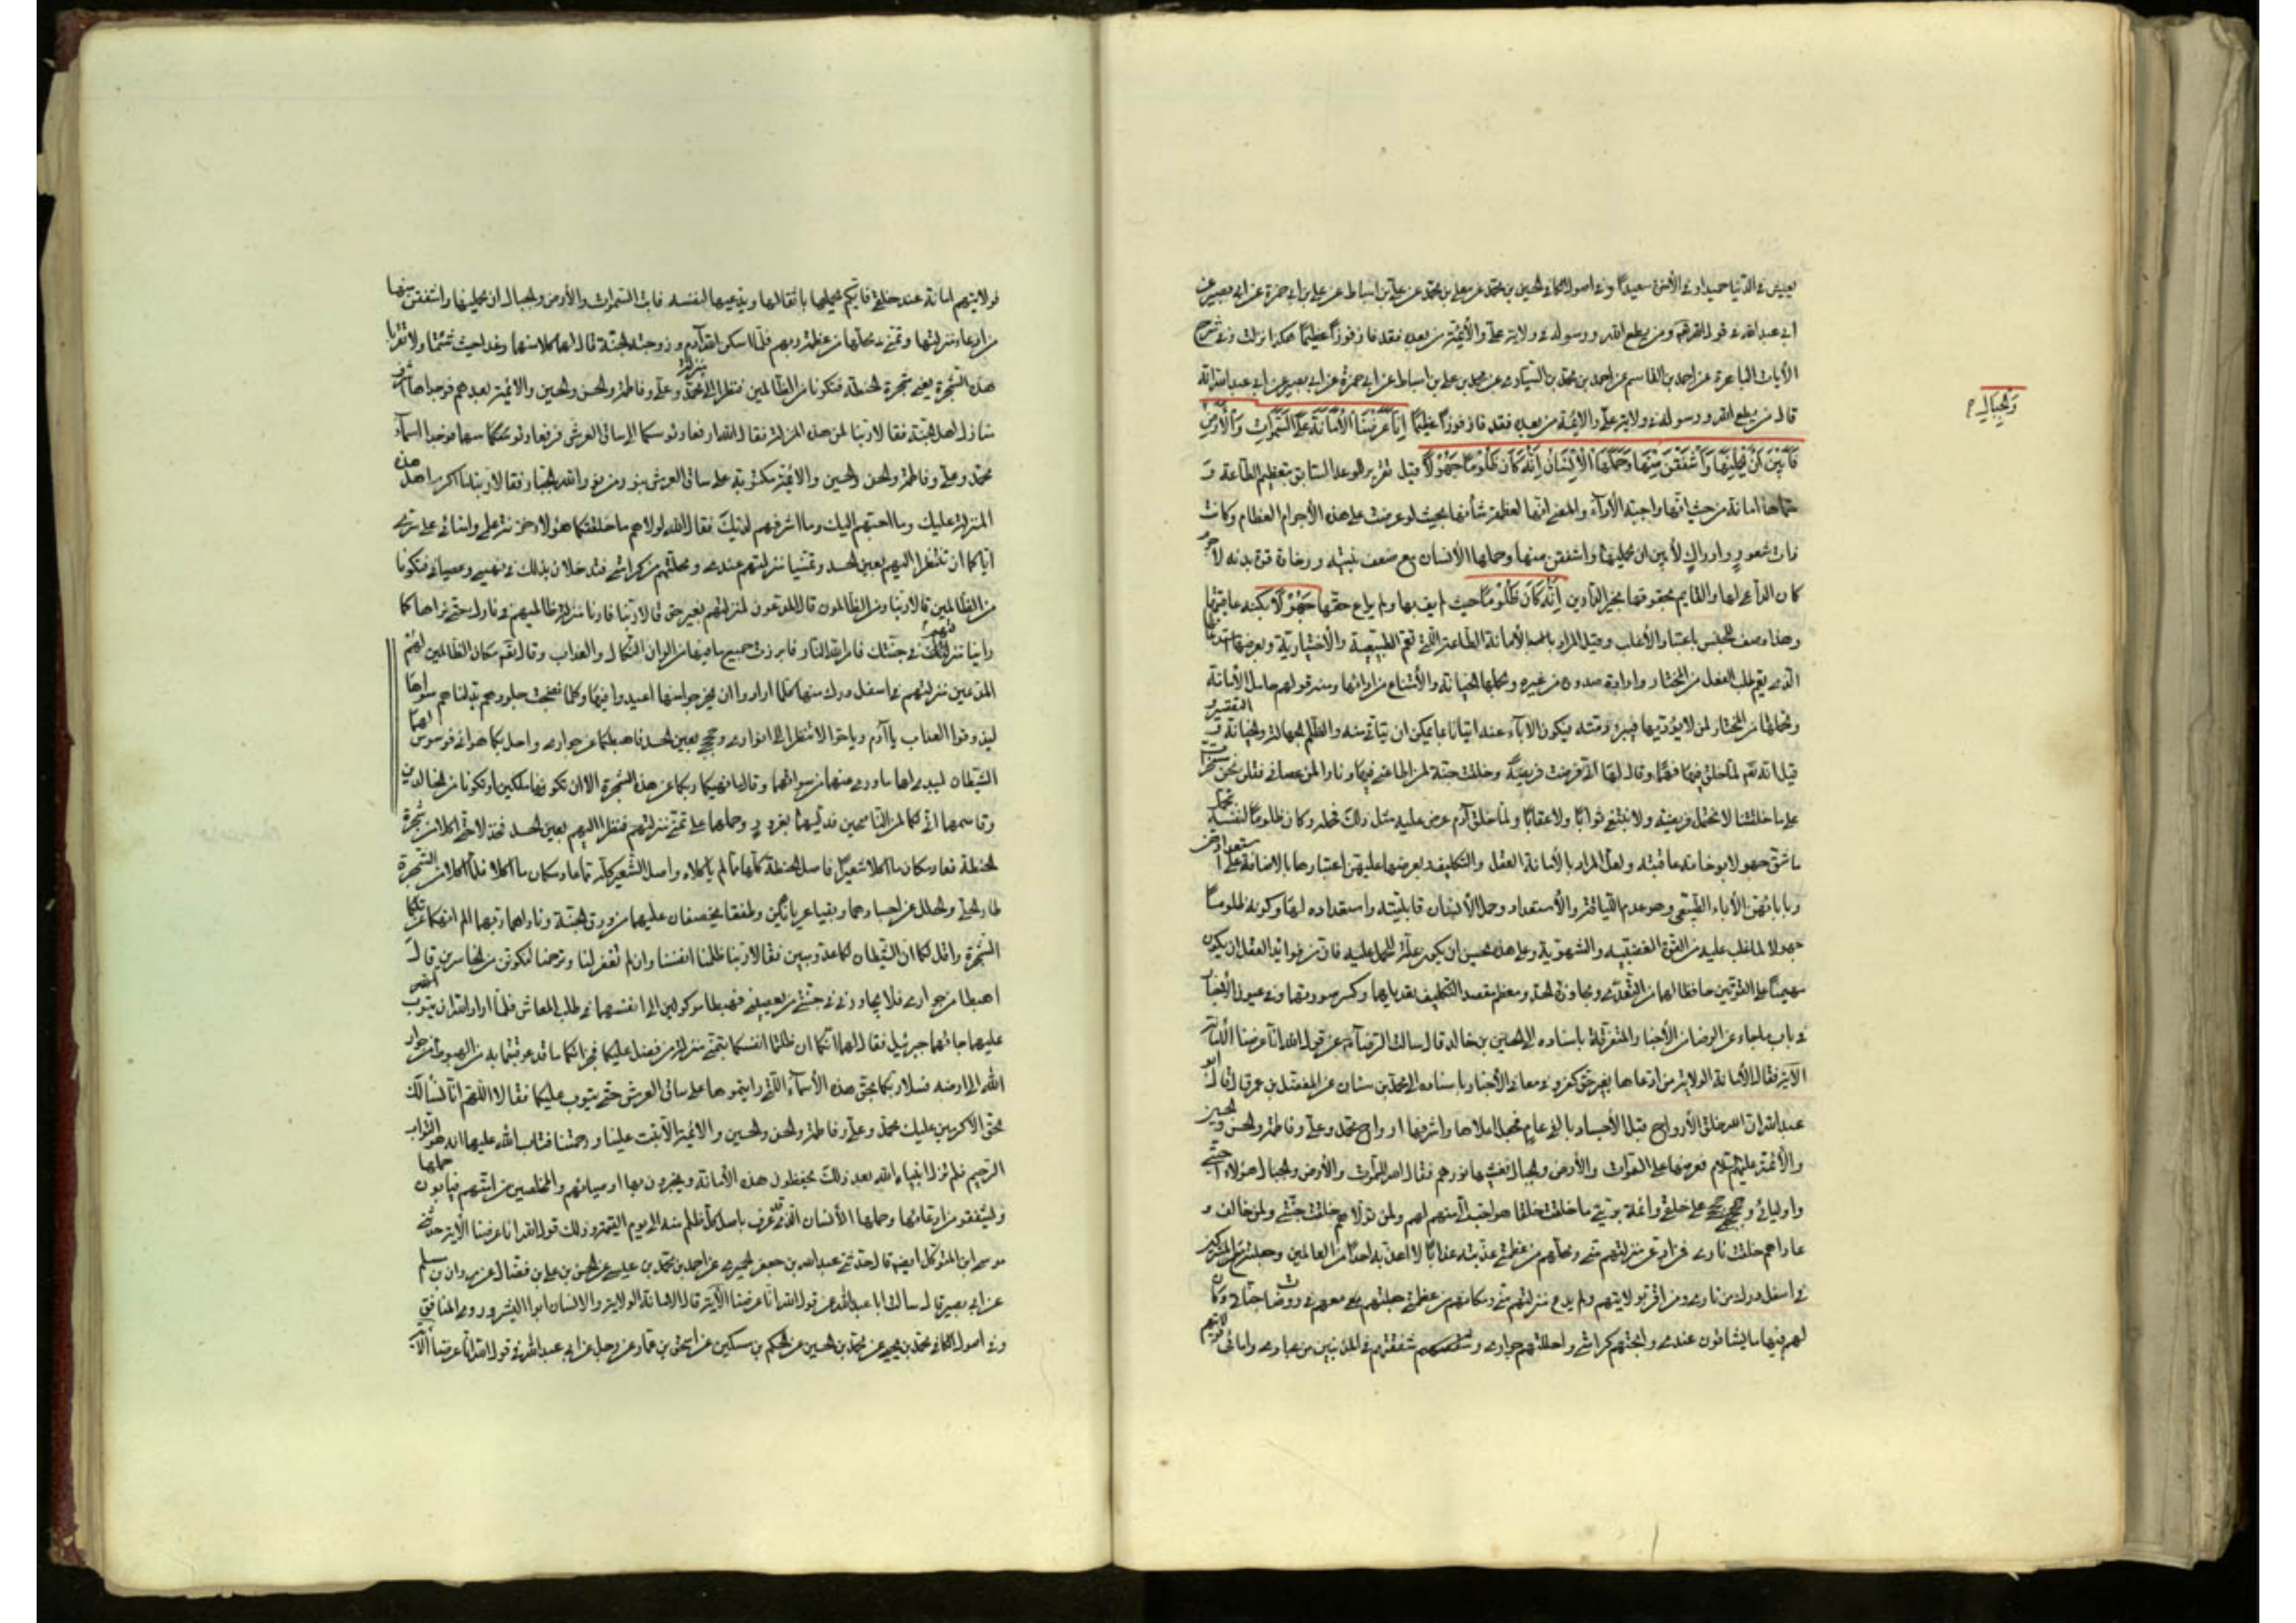 يعيش في الدنيا حميدا وفي الآخرة سعيدا وفي اصول الكافي الحسين بن محمد عن معلى بن محمد عن علي بن اسباط عن علي بن ابي حمزة عن ابي بصير عن
ابي عبدالله في قول الله ومن يطع الله ورسوله في ولاية علي والأئمة من بعده فقد فاز فوزا عظيما هكذا نزلت وفي شرح
الآيات الباهرة عن احمد بن القاسم عن احمد بن محمد بن السياري عن محمد بن علي بن اسباط عن ابن ابي حمزة عن ابي بصير عن ابي عبدالله انه
قال من يطع الله ورسوله في ولاية علي والائمة من بعده فقد فاز فوزا عظيما إِنَّا عَرَضْنَا الْأَمَانَةَ عَلَى السَّمٰوَاتِ وَالْأَرْضِ
وَالْجِبَالِ
فَأَبَيْنَ أَنْ يَحْمِلْنَهَا وَأَشْفَقْنَ مِنْهَا وَحَمَلَهَا الْإِنْسَانُ إِنَّهُ كَانَ ظَلُومًا جَهُولًا قيل تقرير للوعد السابق بتعظيم الطاعة و
سماها امانة من حيث انها واجبة الأداء والمعنى انها لعظمة شأنها بحيث لو عرضت على هذه الأجرام العظام وكانت
ذات شعور وادراك لأبين ان يحملنها واشفقن منها وحملها الأنسان مع ضعف بنيته ورخاوة قوة بدنه لا جرم
كان الراعي لها والقايم بحقوقها بخير الدارين إِنَّهُ كَانَ ظَلُومًا حيث لم يف بها ولم يراع حقها جَهُولًا بكنه عاقبتها
وهذا وصف للجنس باعتبار الأغلب وقيل المراد بالأمانة الطاعة التي تعم الطبيعية والأختيارية وبعرضها استدعاؤها
الذي يعم طلب الفعل من المختار وارادة صدوره من غيره وبحملها الخيانة والأمتناع من ادائها ومنه قولهم حامل الأمانة
ومحتملها من المختار لمن لا يؤديها فيبرء ذمته فيكون الاباء عنه اتيانا بما يمكن ان يتأتى منه والظلم والجهالة والخيانة والتقصير
قيل انه تعالى لما خلق فيها فهما وقال لها اني فرضت فريضة وخلقت جنة لمن اطاعني فيها ونارا لمن عصاني فقلن نحن مسخرات
على ما خلقتنا لا نحتمل فريضة ولا نبتغي ثوابا ولا عقابا ولما خلق آدم عرض عليه مثل ذلك فحمله وكان ظلوما لنفسه بتحمله
ما شق جهولا بوخامة عاقبته ولعل المراد بالأمانة العقل والتكليف وبعرضها عليهن اعتبارها بالاضافة على استعدادهن
وبابائهن الأباء الطبيعي وهو عدم اللياقة والأستعداد وحمل الأنسان قابليته واستعداده لها وكونه ظلوما
جهولا لما غلب عليه من القوة الغضبيه والشهوية وعلى هذا يحسن ان يكون علة للحمل عليه فان من فوايد العقل ان يكون
مهيمنا على القوتين حافظا لهما من التعدي ومجاوزة الحد ومعظم مقصد التكليف تعديلهما وكسر سورتهما وفي عيون الأخبار
في باب ما جاء عن الرضا من الأخبار المتفرقة باسناده الى الحسين بن خالد قال سالت الرضا عن قول الله انا عرضنا الأمانة
الآية فقال الأمانة الولاية من ادعاها بغير حق كفر وفي معاني الأخبار باسناده الى محمد بن سنان عن المفضل بن عمر قال قال ابو
عبدالله ان الله خلق الأرواح قبل الأجساد بالفي عام فجعل اعلاها واشرفها ارواح محمد وعلي وفاطمة والحسن والحسين
والأئمة عليهم السلام فعرضها على السموات والأرض والجبال فغشيها نورهم فقال الله للسموات والأرض والجبال هؤلاء احبائي
واوليائي وحججي على خلقي وائمة بريتي ما خلقت خلقا هو احب الي منهم لهم ولمن تولاهم خلقت جنتي ولمن خالفهم و
عاداهم خلقت ناري فمن ادعى منزلتهم مني ومحلهم من عظمتي عذبته عذابا لا اعذبه احدا من العالمين وجعلته مع المشركين
في اسفل درك من ناري ومن اقر بولايتهم ولم يدع منزلتهم مني ومكانهم من عظمتي جعلته معهم في روضات جناتي وكان
لهم فيها ما يشاؤن عندي وابحتهم كرامتي واحللتهم جواري وشفعتهم في المذنبين من عبادي وامائي فولايتهم
فولايتهم امانة عند خلقي فايكم يحملها باثقالها ويدعيها لنفسه فابت السموات والأرض والجبال ان يحملنها واشفقن منها
من ادعاء منزلتها وتمني محلها من عظمة ربهم فلما اسكن الله آدم وزوجته الجنة قال لهما كلا منها رغدا حيث شئتما ولا تقربا
هذه الشجرة يعني شجرة الحنطة فتكونا من الظالمين فنظرا الى منزلة محمد وعلي وفاطمة والحسن والحسين والائمة بعدهم فوجداها اشرف
منازل اهل الجنة فقالا ربنا لمن هذه المنزلة فقال الله ارفعا رؤسكما الى ساق العرش فرفعا رؤسهما فوجدا اسماء
محمد وعلي وفاطمة والحسن والحسين والائمة مكتوبة على ساق العرش بنور من نور الله الجبار فقالا ربنا ما اكرم اهل هذه
المنزلة عليك وما احبهم اليك وما اشرفهم لديك فقال الله لولاهم ما خلقتكما هؤلاء خزنة علمي وامنائي على سري
اياكما ان تنظرا اليهم بعين الحسد وتمنيا منزلتهم عندي ومحلهم من كرامتي فتدخلان بذلك في نهيي وعصياني فتكونا
من الظالمين قالا ربنا ومن الظالمون قال المدعون لمنزلتهم بغير حق قالا ربنا فارنا منزلة ظالميهم في نارك حتى نراها كما
راينا منزلتهم في جنتك فامر الله النار فابرزت جميع ما فيها من الوان النكال والعذاب وقال الله مكان الظالمين لهم
المدعين منزلتهم في اسفل درك منها كلما ارادوا ان يخرجوا منها اعيدوا فيها وكلما نضجت جلودهم بدلناهم سواها
ليذوقوا العذاب يا آدم ويا حوا لا تنظرا الى انواري وحججي بعين الحسد فاهبطكما عن جواري واحل بكما هواني فوسوس لهما
الشيطان ليبدي لهما ما ووري عنهما من سواتهما وقال ما نهيكما ربكما عن هذه الشجرة الا ان تكونا ملكين او تكونا من الخالدين
وقاسمهما اني لكما لمن الناصحين فدليهما بغرور وحملهما على تمني منزلتهم فنظرا اليهم بعين الحسد فخذلا حتى اكلا من شجرة
الحنطة فعاد مكان ما اكلا شعيرا فاصل الحنطة كلها مما لم ياكلاه واصل الشعير كله مما عاد مكان ما اكلاه فلما اكلا من الشجرة
طار الحلي والحلل عن اجسادهما وبقيا عريانين وطفقا يخصفان عليهما من ورق الجنة وناداهما ربهما الم انهكما عن تلكما
الشجرة واقل لكما ان الشيطان لكما عدو مبين فقالا ربنا ظلمنا انفسنا وان لم تغفر لنا وترحمنا لنكونن من الخاسرين قال
اهبطا من جواري فلا يجاورني في جنتي من يعصيني فهبطا موكولين الى انفسهما في طلب المعاش فلما اراد الله ان يتوب
عليهما جائهما جبرئيل فقال لهما انكما ان ظلمتما انفسكما بتمني منزلة من فضل عليكما فجزاكما ما قد عوقبتما به من الهبوط من جوار
الله الى ارضه فسلا ربكما بحق هذه الأسماء التي رايتموها على ساق العرش حتى يتوب عليكما فقالا اللهم انا نسألك
بحق الاكرمين عليك محمد وعلي وفاطمة والحسن والحسين والائمة الا تبت علينا ورحمتنا فتاب الله عليهما انه هو التواب
الرحيم فلم تزل انبياء الله بعد ذلك يحفظون هذه الأمانة ويخبرون بها اوصيائهم والمخلصين من امتهم فيابون حملها
ويشفقون من ادعائها وحملها الأنسان الذي قد عرف باصل كل ظلم منه الى يوم القيمة وذلك قول الله انا عرضنا الآية حدثني
موسى ابن المتوكل قال حدثني عبدالله بن جعفر الحميري عن احمد بن محمد بن عيسى عن الحسن بن علي بن فضال عن مروان بن مسلم
عن ابي بصير قال سالت ابا عبدالله عن قول الله انا عرضنا الآية قال الامانة الولاية والانسان ابوا الشرور المنافق
وفي اصول الكافي محمد بن يحيى عن محمد بن الحسين عن الحكم بن مسكين عن اسحق بن عمار عن رجل عن ابي عبدالله في قول الله انا عرضنا الآية